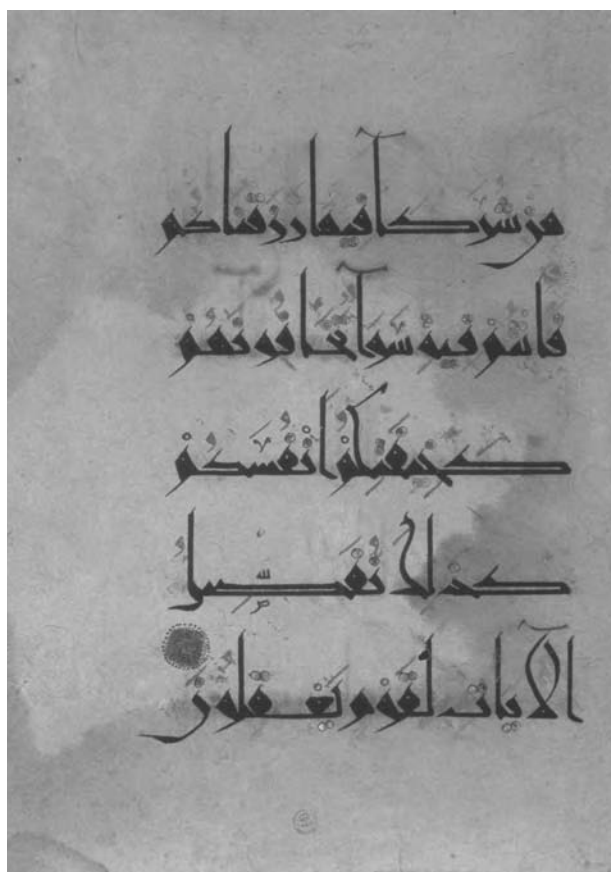 من شركآ فيما رزقناكم
فانتم فيه سوآ تخافونهم
كخيفتكم انفسكم
كذلك نفصل
الآيات لقوم يعقلون